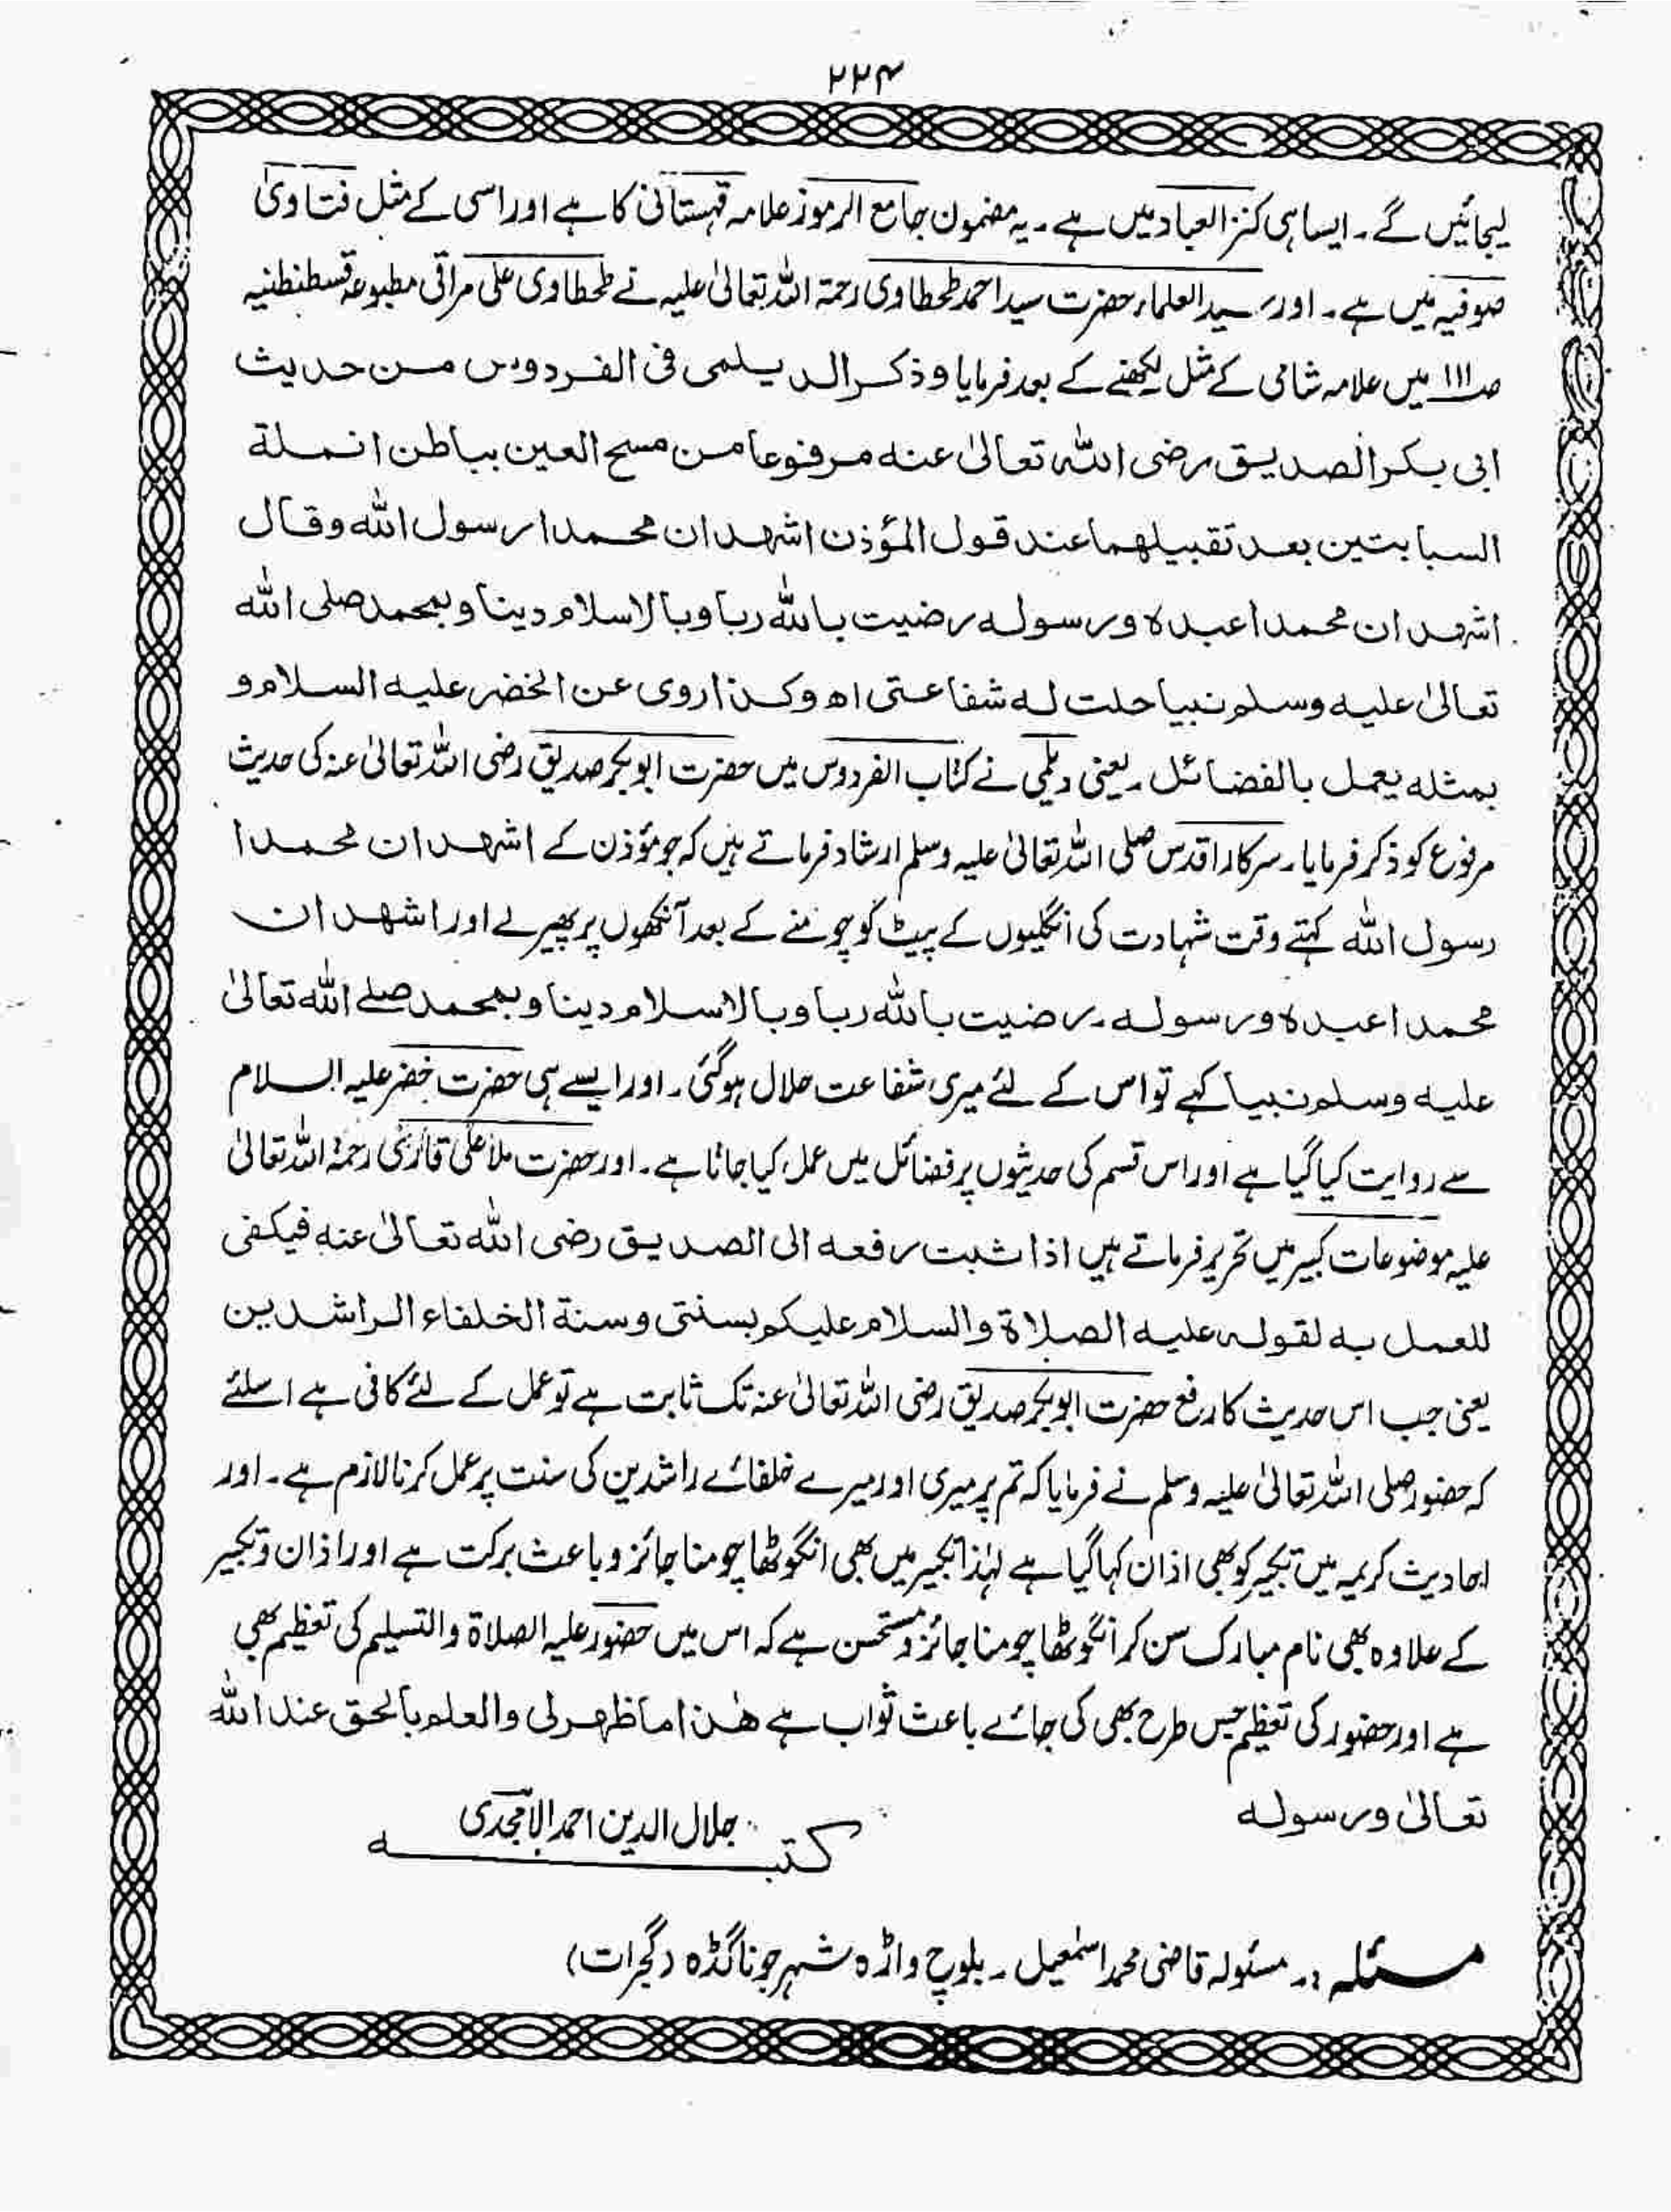 ۲۲۴
لیجائیں گے۔ ایسا ہی کنز العباد میں ہے۔ یہ مضمون جامع الرموز علامہ قہستانی کا ہے اور اسی کے مثل فتاویٰ
صوفیہ میں ہے۔ اور سید العلماء حضرت سید احمد طحطاوی رحمۃ اللہ تعالیٰ علیہ نے طحطاوی علی مراقی مطبوعہ قسطنطنیہ
صـ۱۱۱ میں علامہ شامی کے مثل لکھنے کے بعد فرمایا وذکر الدیلمی فی الفردوس من حدیث
ابی بکر الصدیق رضی اللہ تعالیٰ عنہ مرفوعا من مسح العین بباطن انملة
السبابتین بعد تقبیلهما عند قول المؤذن اشهد ان محمدا رسول اللہ وقال
اشهد ان محمدا عبدہ ورسوله رضیت باللہ ربا وبالاسلام دینا وبمحمد صلی اللہ
تعالیٰ علیه وسلم نبیا حلت له شفاعتی اھ وکذا روی عن الخضر علیه السلام و
بمثله یعمل بالفضائل۔ یعنی دیلمی نے کتاب الفردوس میں حضرت ابوبکر صدیق رضی اللہ تعالیٰ عنہ کی حدیث
مرفوع کو ذکر فرمایا۔ سرکار اقدس صلی اللہ تعالیٰ علیہ وسلم ارشاد فرماتے ہیں کہ جو مؤذن کے اشهد ان محمدا
رسول اللہ کہتے وقت شہادت کی انگلیوں کے پیٹ کو چومنے کے بعد آنکھوں پر پھیرے اور اشهد ان
محمدا عبدہ ورسوله۔ رضیت باللہ ربا وبالاسلام دینا وبمحمد صلے اللہ تعالیٰ
علیه وسلم نبیا کہے تو اس کے لئے میری شفاعت حلال ہوگئی۔ اور ایسے ہی حضرت خضر علیہ السلام
سے روایت کیا گیا ہے اور اس قسم کی حدیثوں پر فضائل میں عمل کیا جاتا ہے۔ اور حضرت ملا علی قاری رحمۃ اللہ تعالیٰ
علیہ موضوعات کبیر میں تحریر فرماتے ہیں اذا ثبت رفعه الی الصدیق رضی اللہ تعالیٰ عنه فیکفی
للعمل به لقوله علیه الصلاة والسلام علیکم بسنتی وسنة الخلفاء الراشدین
یعنی جب اس حدیث کا رفع حضرت ابوبکر صدیق رضی اللہ تعالیٰ عنہ تک ثابت ہے تو عمل کے لئے کافی ہے اسلئے
کہ حضور صلی اللہ تعالیٰ علیہ وسلم نے فرمایا کہ تم پر میری اور میرے خلفائے راشدین کی سنت پر عمل کرنا لازم ہے۔ اور
احادیث کریمہ میں تکبیر کو بھی اذان کہا گیا ہے لہٰذا تکبیر میں بھی انگوٹھا چومنا جائز و باعث برکت ہے اور اذان و تکبیر
کے علاوہ بھی نام مبارک سن کر انگوٹھا چومنا جائز و مستحسن ہے کہ اس میں حضور علیہ الصلاۃ والتسلیم کی تعظیم بھی
ہے اور حضور کی تعظیم جس طرح بھی کی جائے باعث ثواب ہے هٰذا ما ظهر لی والعلم بالحق عند اللہ
تعالیٰ ورسوله
کتبـــه جلال الدین احمد الامجدی
مسئلہ :۔ مسئولہ قاضی محمد اسمٰعیل۔ بلوچ واڑہ شہر جوناگڈہ (گجرات)